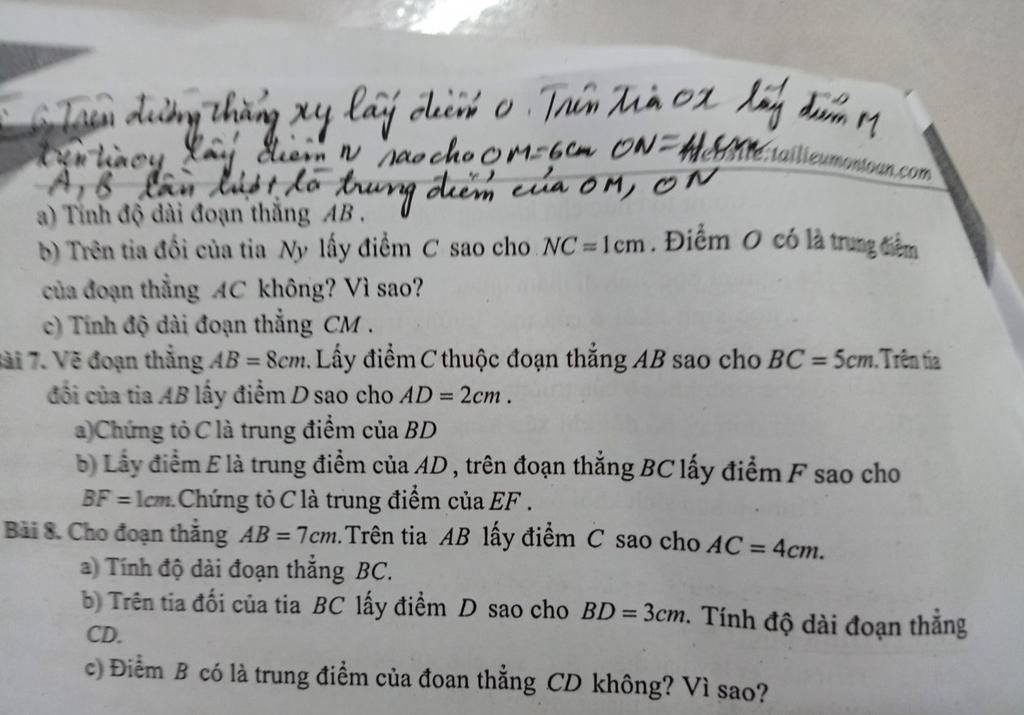 6. Trên đường thẳng xy lấy điểm O. Trên tia Ox lấy điểm M
trên tia oy lấy điểm N sao cho OM=6cm ON=
Website:tailieumontoan.com
A, B lần lượt là trung điểm của OM, ON
a) Tính độ dài đoạn thẳng AB.
b) Trên tia đối của tia Ny lấy điểm C sao cho NC = 1cm. Điểm O có là trung điểm
của đoạn thẳng AC không? Vì sao?
c) Tính độ dài đoạn thẳng CM.
Bài 7. Vẽ đoạn thẳng AB = 8cm. Lấy điểm C thuộc đoạn thẳng AB sao cho BC = 5cm. Trên tia
đối của tia AB lấy điểm D sao cho AD = 2cm.
a)Chứng tỏ C là trung điểm của BD
b) Lấy điểm E là trung điểm của AD, trên đoạn thẳng BC lấy điểm F sao cho
BF = 1cm. Chứng tỏ C là trung điểm của EF.
Bài 8. Cho đoạn thẳng AB = 7cm. Trên tia AB lấy điểm C sao cho AC = 4cm.
a) Tính độ dài đoạn thẳng BC.
b) Trên tia đối của tia BC lấy điểm D sao cho BD = 3cm. Tính độ dài đoạn thẳng
CD.
c) Điểm B có là trung điểm của đoan thẳng CD không? Vì sao?